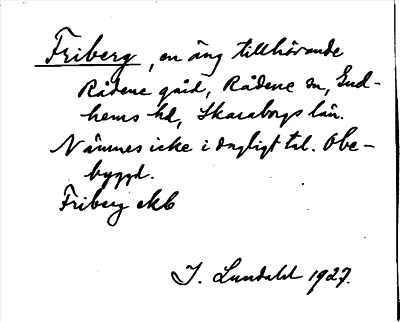 Friberg, en äng tillhörande
Rådene gård, Rådene sn, Gud-
hems hd, Skaraborgs län.
Nämnes icke i dagligt tal. Obe-
byggd.
Friberg ekb
I. Lundahl 1927.